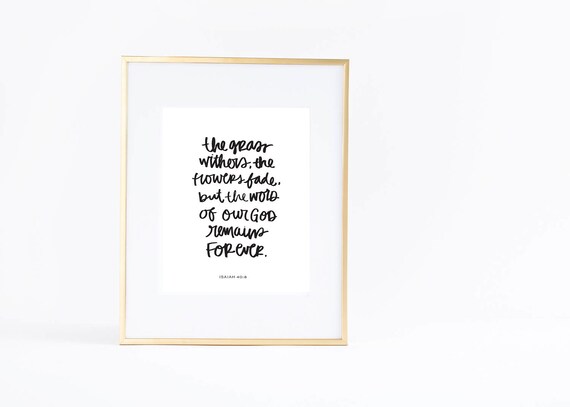 the grass
withers, the
flowers fade,
but the word
of our God
remains
FOREVER.
ISAIAH 40:8